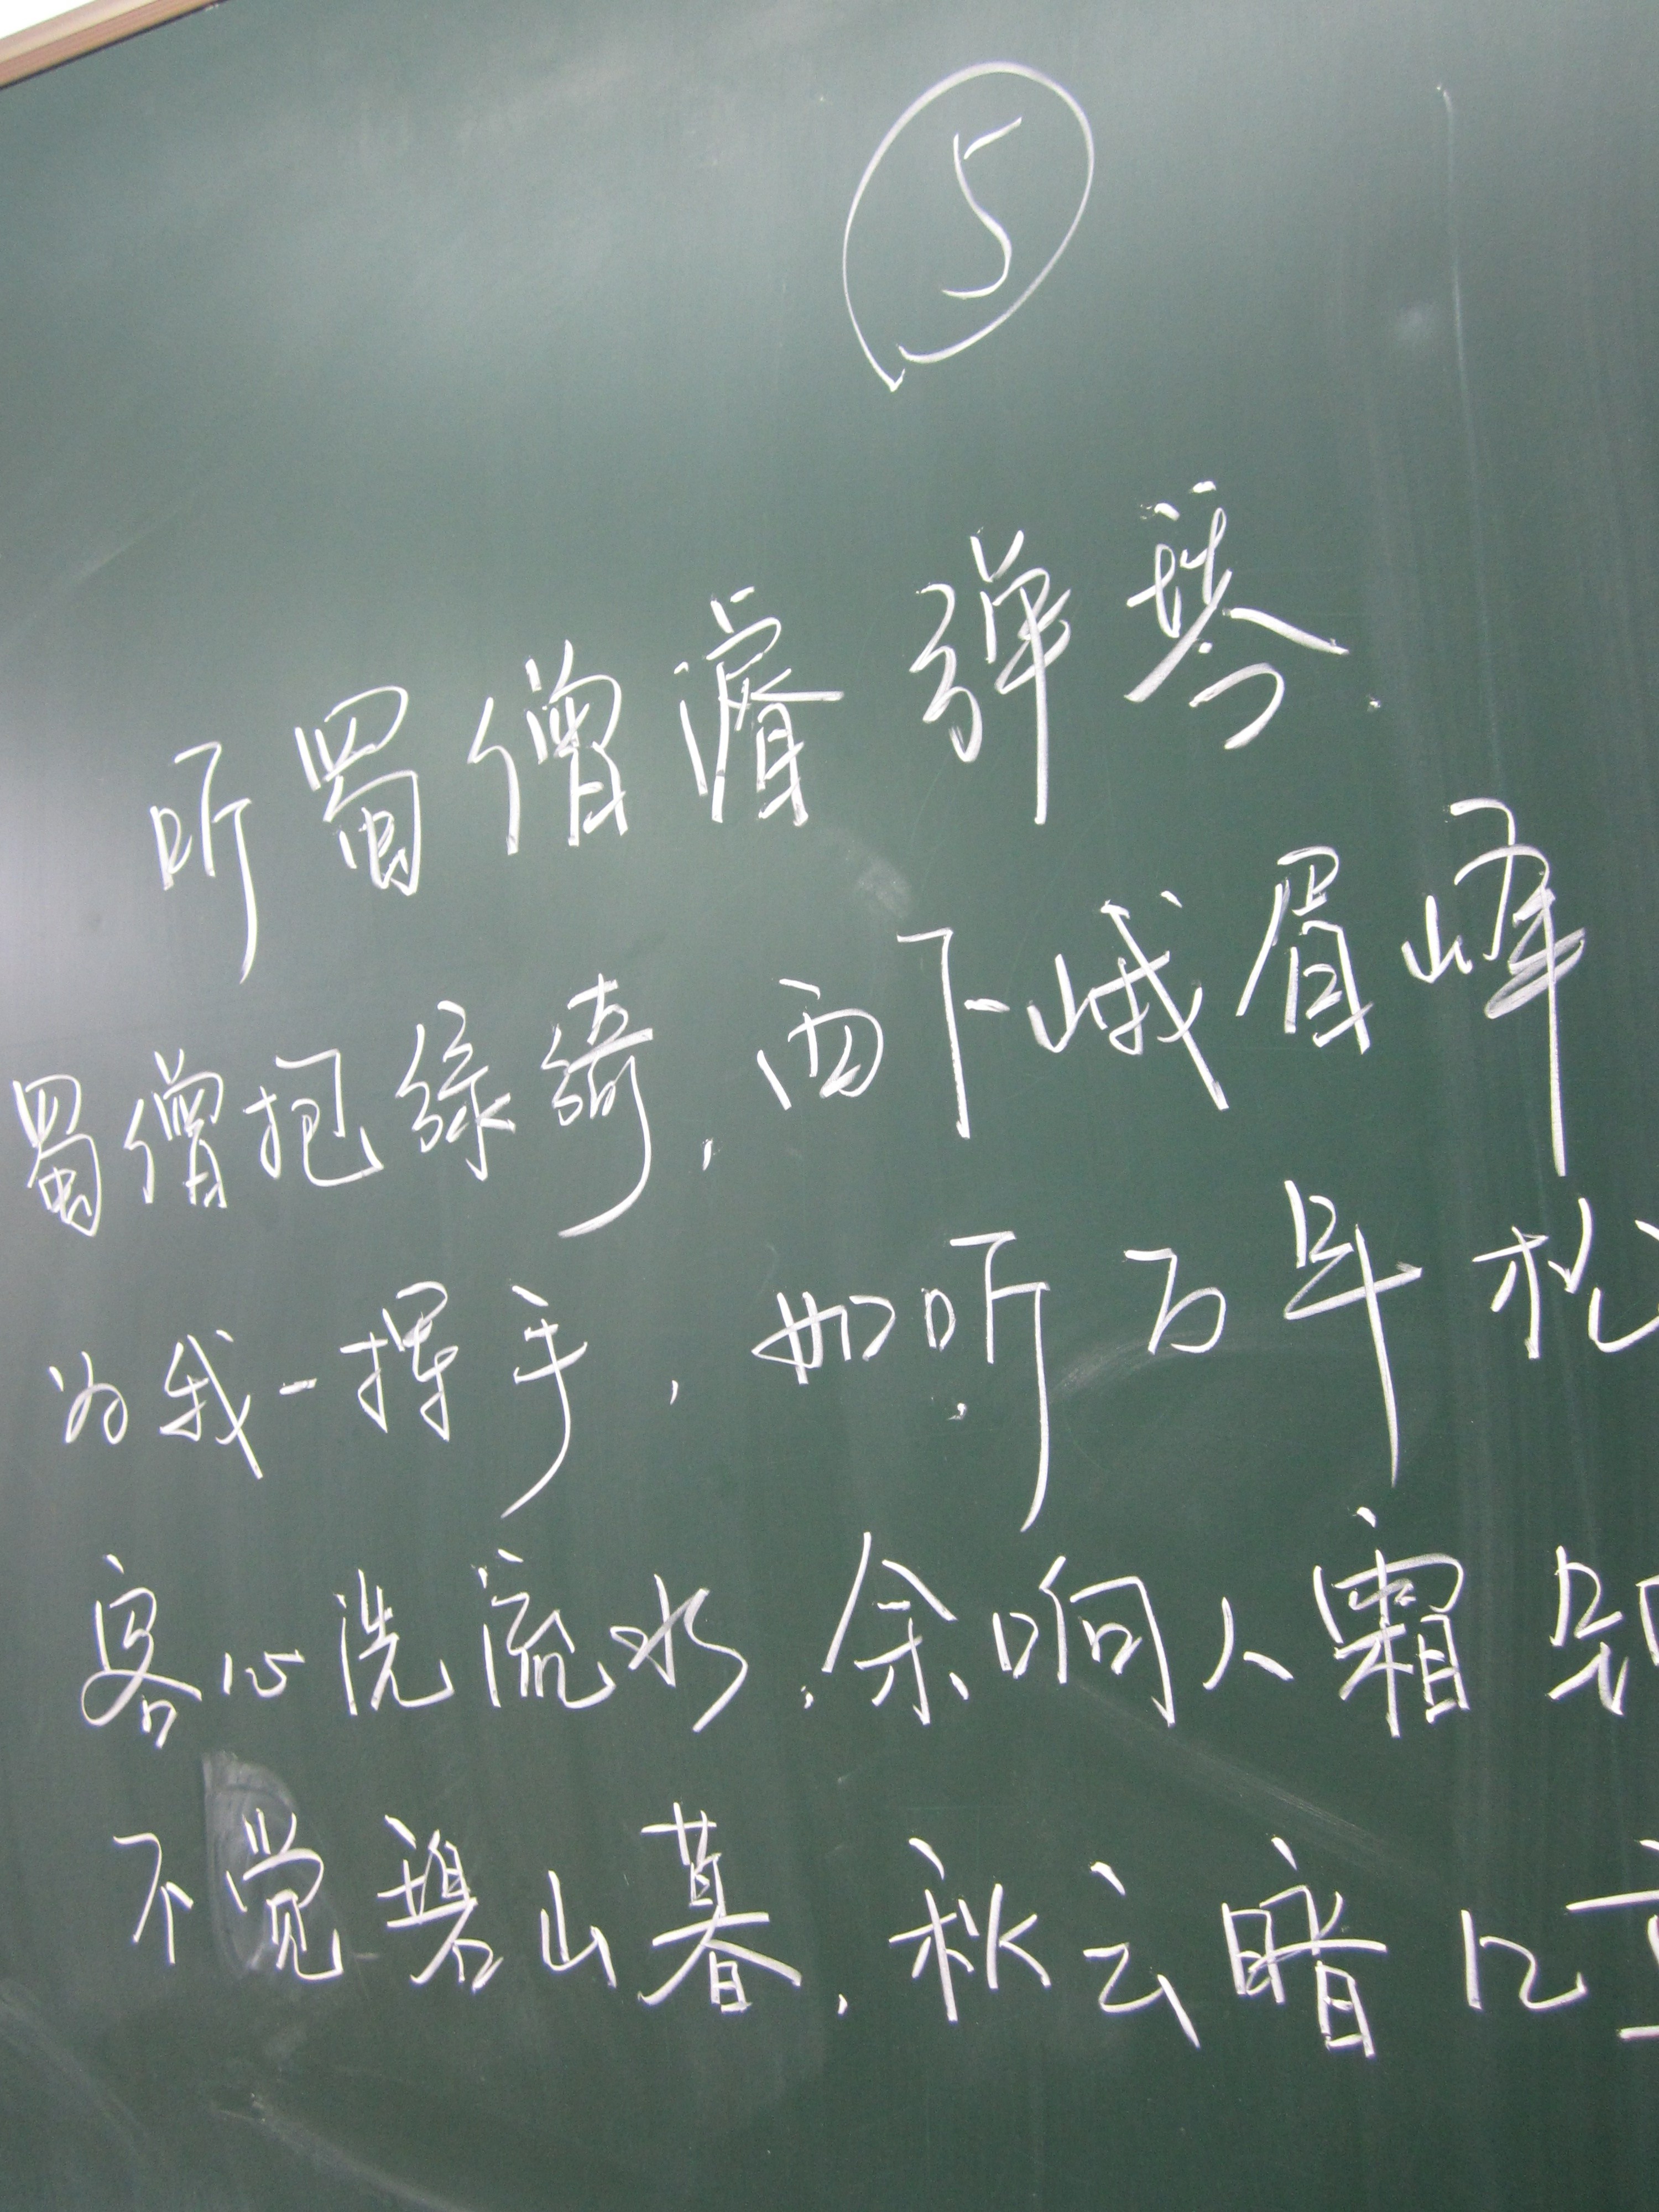 5
听蜀僧濬弹琴.
蜀僧抱绿绮,西下峨眉峰
为我一挥手,如听万年松
客心洗流水,余响人霜钟
不觉碧山暮,秋云暗几